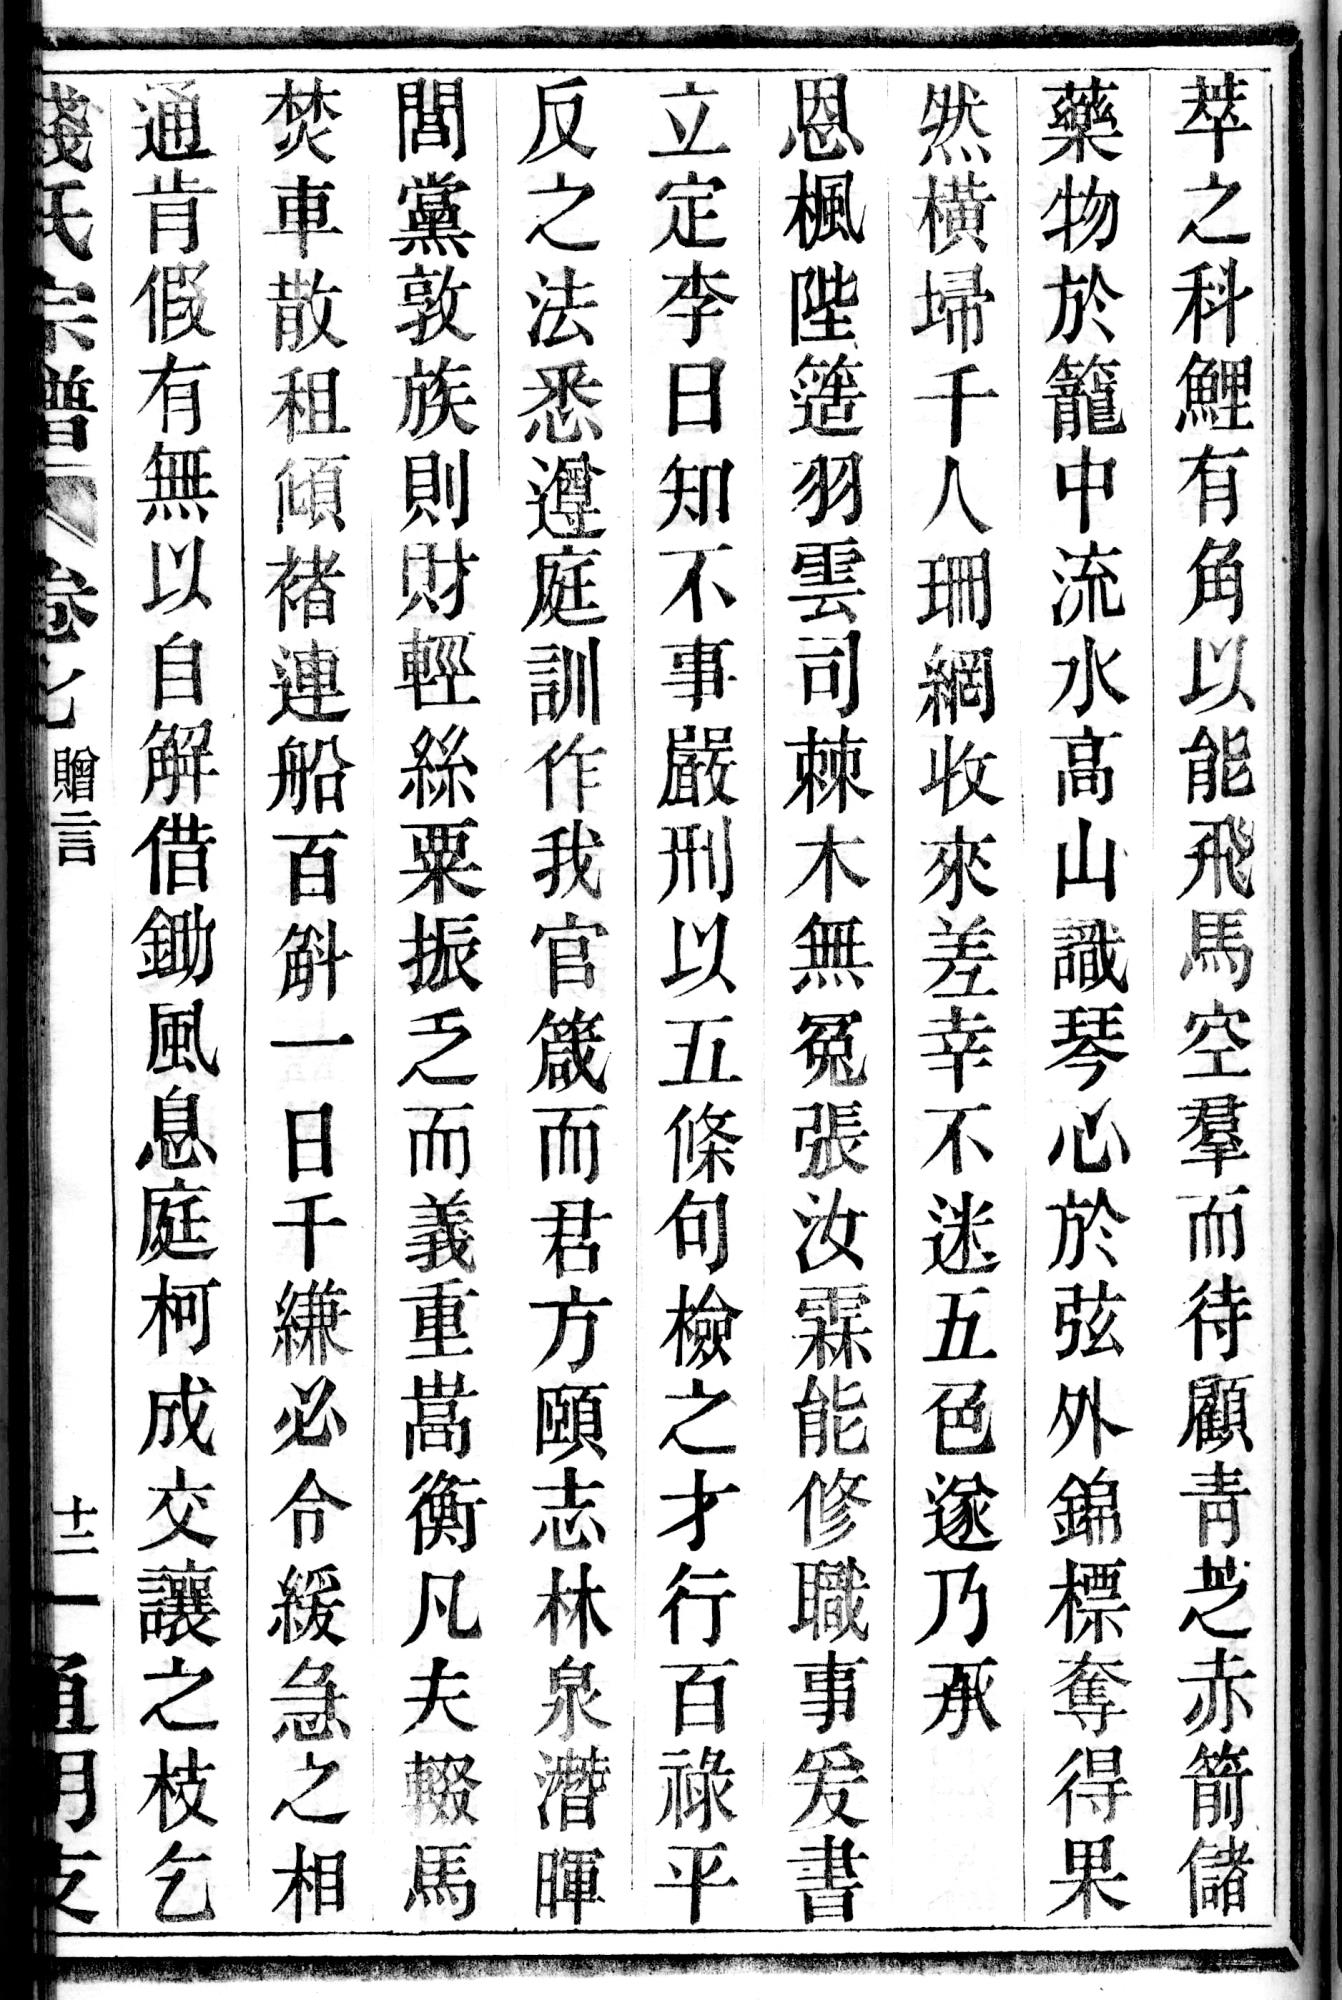 萃之科鯉有角以能飛馬空羣而待顧青芝赤箭儲
藥物於籠中流水高山識琴心於弦外錦標奪得果
然橫埽千人珊網收來差幸不迷五色遂乃承
恩楓陛簉羽雲司棘木無冤張汝霖能修職事爰書
立定李日知不事嚴刑以五條句檢之才行百祿平
反之法悉遵庭訓作我官箴而君方頤志林泉潛暉
閭黨敦族則財輕絲粟振乏而義重嵩衡凡夫輟馬
焚車散租傾褚連船百斛一日千縑必令緩急之相
通肯假有無以自解借鋤風息庭柯成交讓之枝乞
錢氏宗譜 卷七 贈言 十三 通明支